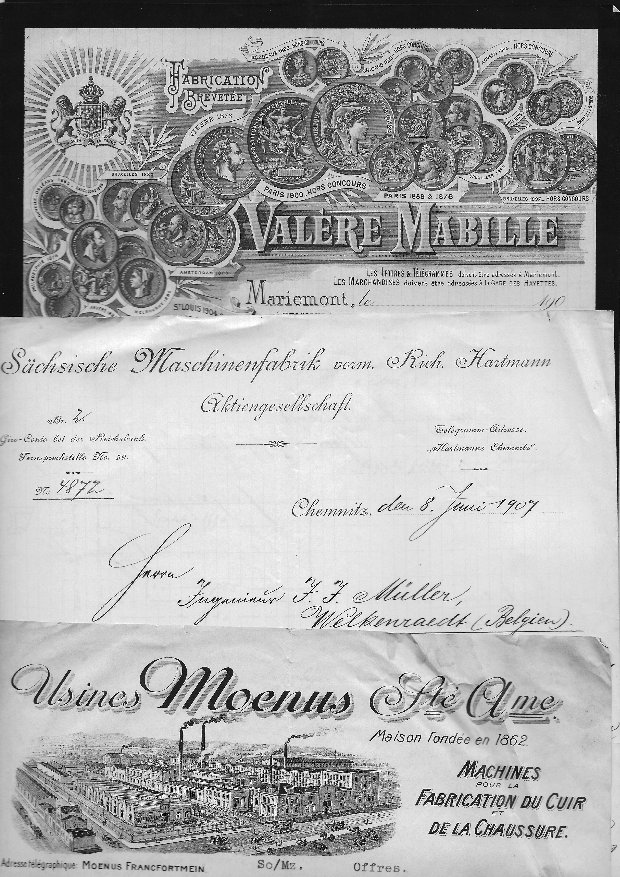 FABRICATION
BREVETÉE
PARIS 1900 HORS CONCOURS
PARIS 1889 & 1878
AMSTERDAM
ST LOUIS 1904
VALÈRE MABILLE
LES LETTRES & TÉLÉGRAMMES doivent être adressés à Mariemont.
LES MARCHANDISES doivent être adressées à la GARE DES HAYETTES.
Mariemont, le 190
Sächsische Maschinenfabrik vorm. Rich. Hartmann
Aktiengesellschaft.
Giro-Conto bei der Reichsbank.
Fernsprechstelle No.
Telegramm-Adresse:
„Hartmanns Chemnitz“
No. 4872
Chemnitz, den 8. Juni 1907
Herrn
Ingenieur F. F. Müller,
Welkenraedt (Belgien).
Usines Moenus Sté Ame.
Maison fondée en 1862.
MACHINES
POUR LA
FABRICATION DU CUIR
ET
DE LA CHAUSSURE.
Adresse télégraphique: MOENUS FRANCFORTMEIN
So/Mz. Offres.